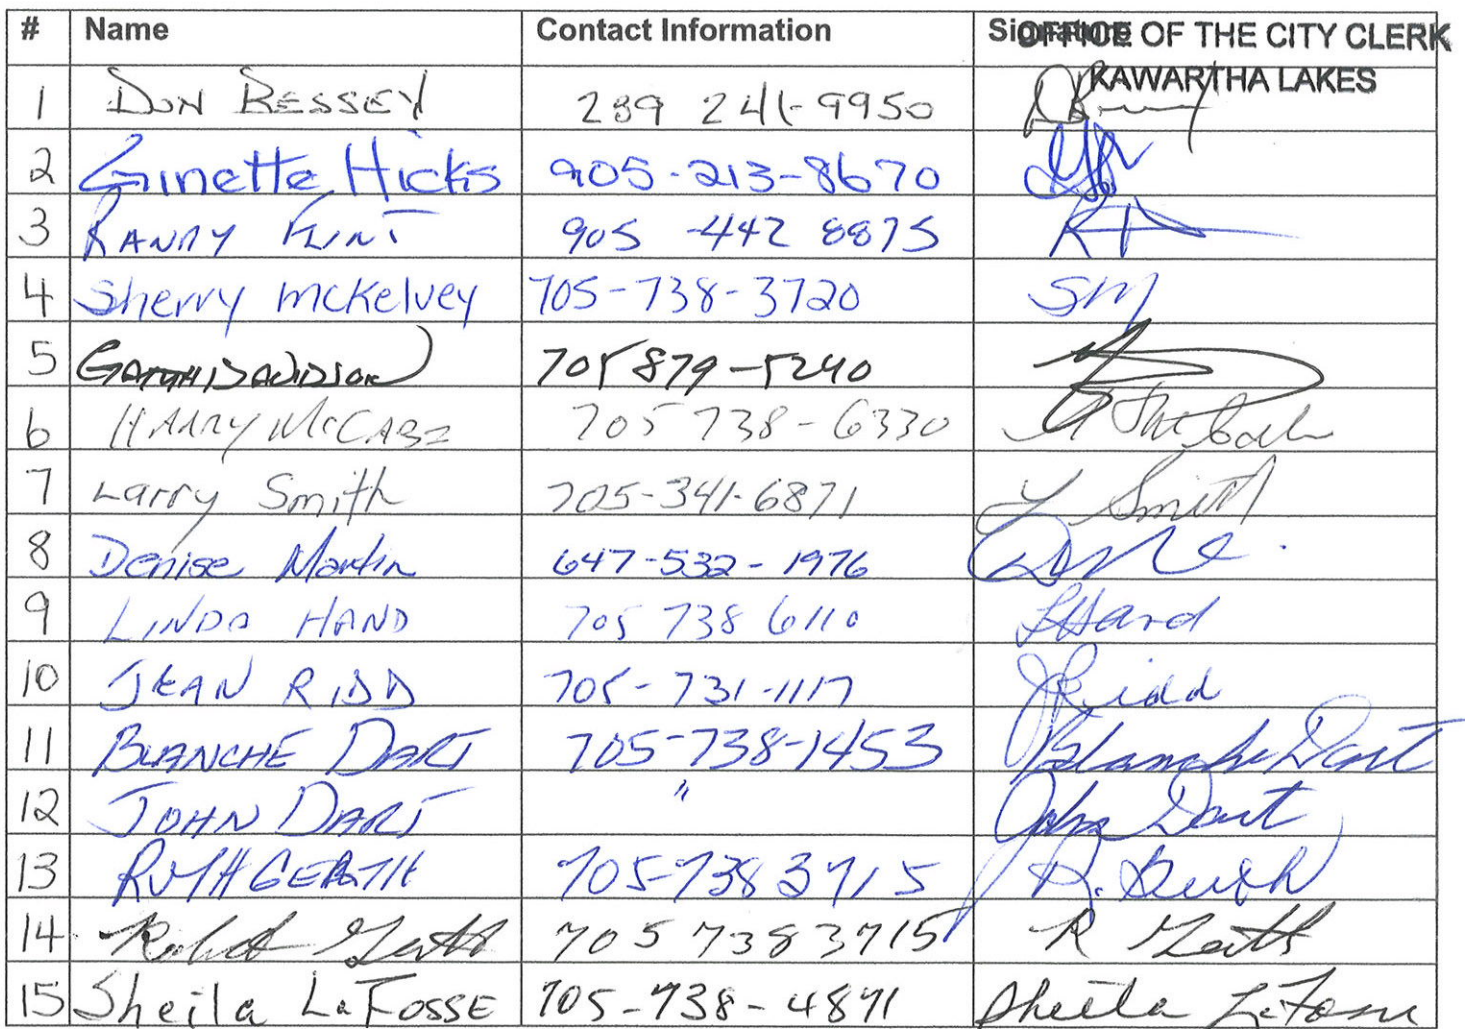 # Name Contact Information Signature
OFFICE OF THE CITY CLERK
KAWARTHA LAKES
1 DON BESSEY 289 241-9950
2 Ginette Hicks 905-213-8670
3 RANDY FLINT 905 -442 8875
4 Sherry McKelvey 705-738-3720 SM
5 GARTH DAVIDSON 705 879-5240
6 HARRY McCABE 705 738-6330
7 Larry Smith 705-341-6871 L Smith
8 Denise Martin 647-532-1976
9 LINDA HAND 705 738 6110 LHand
10 JEAN RIDD 705-731-1117 J Ridd
11 BLANCHE DART 705-738-1453 Blanche Dart
12 JOHN DART " John Dart
13 RUTH GERTH 705-738 3715
14 Robert Gerth 705 738 3715 R Gerth
15 Sheila LaFOSSE 705-738-4871 Sheila LaFosse